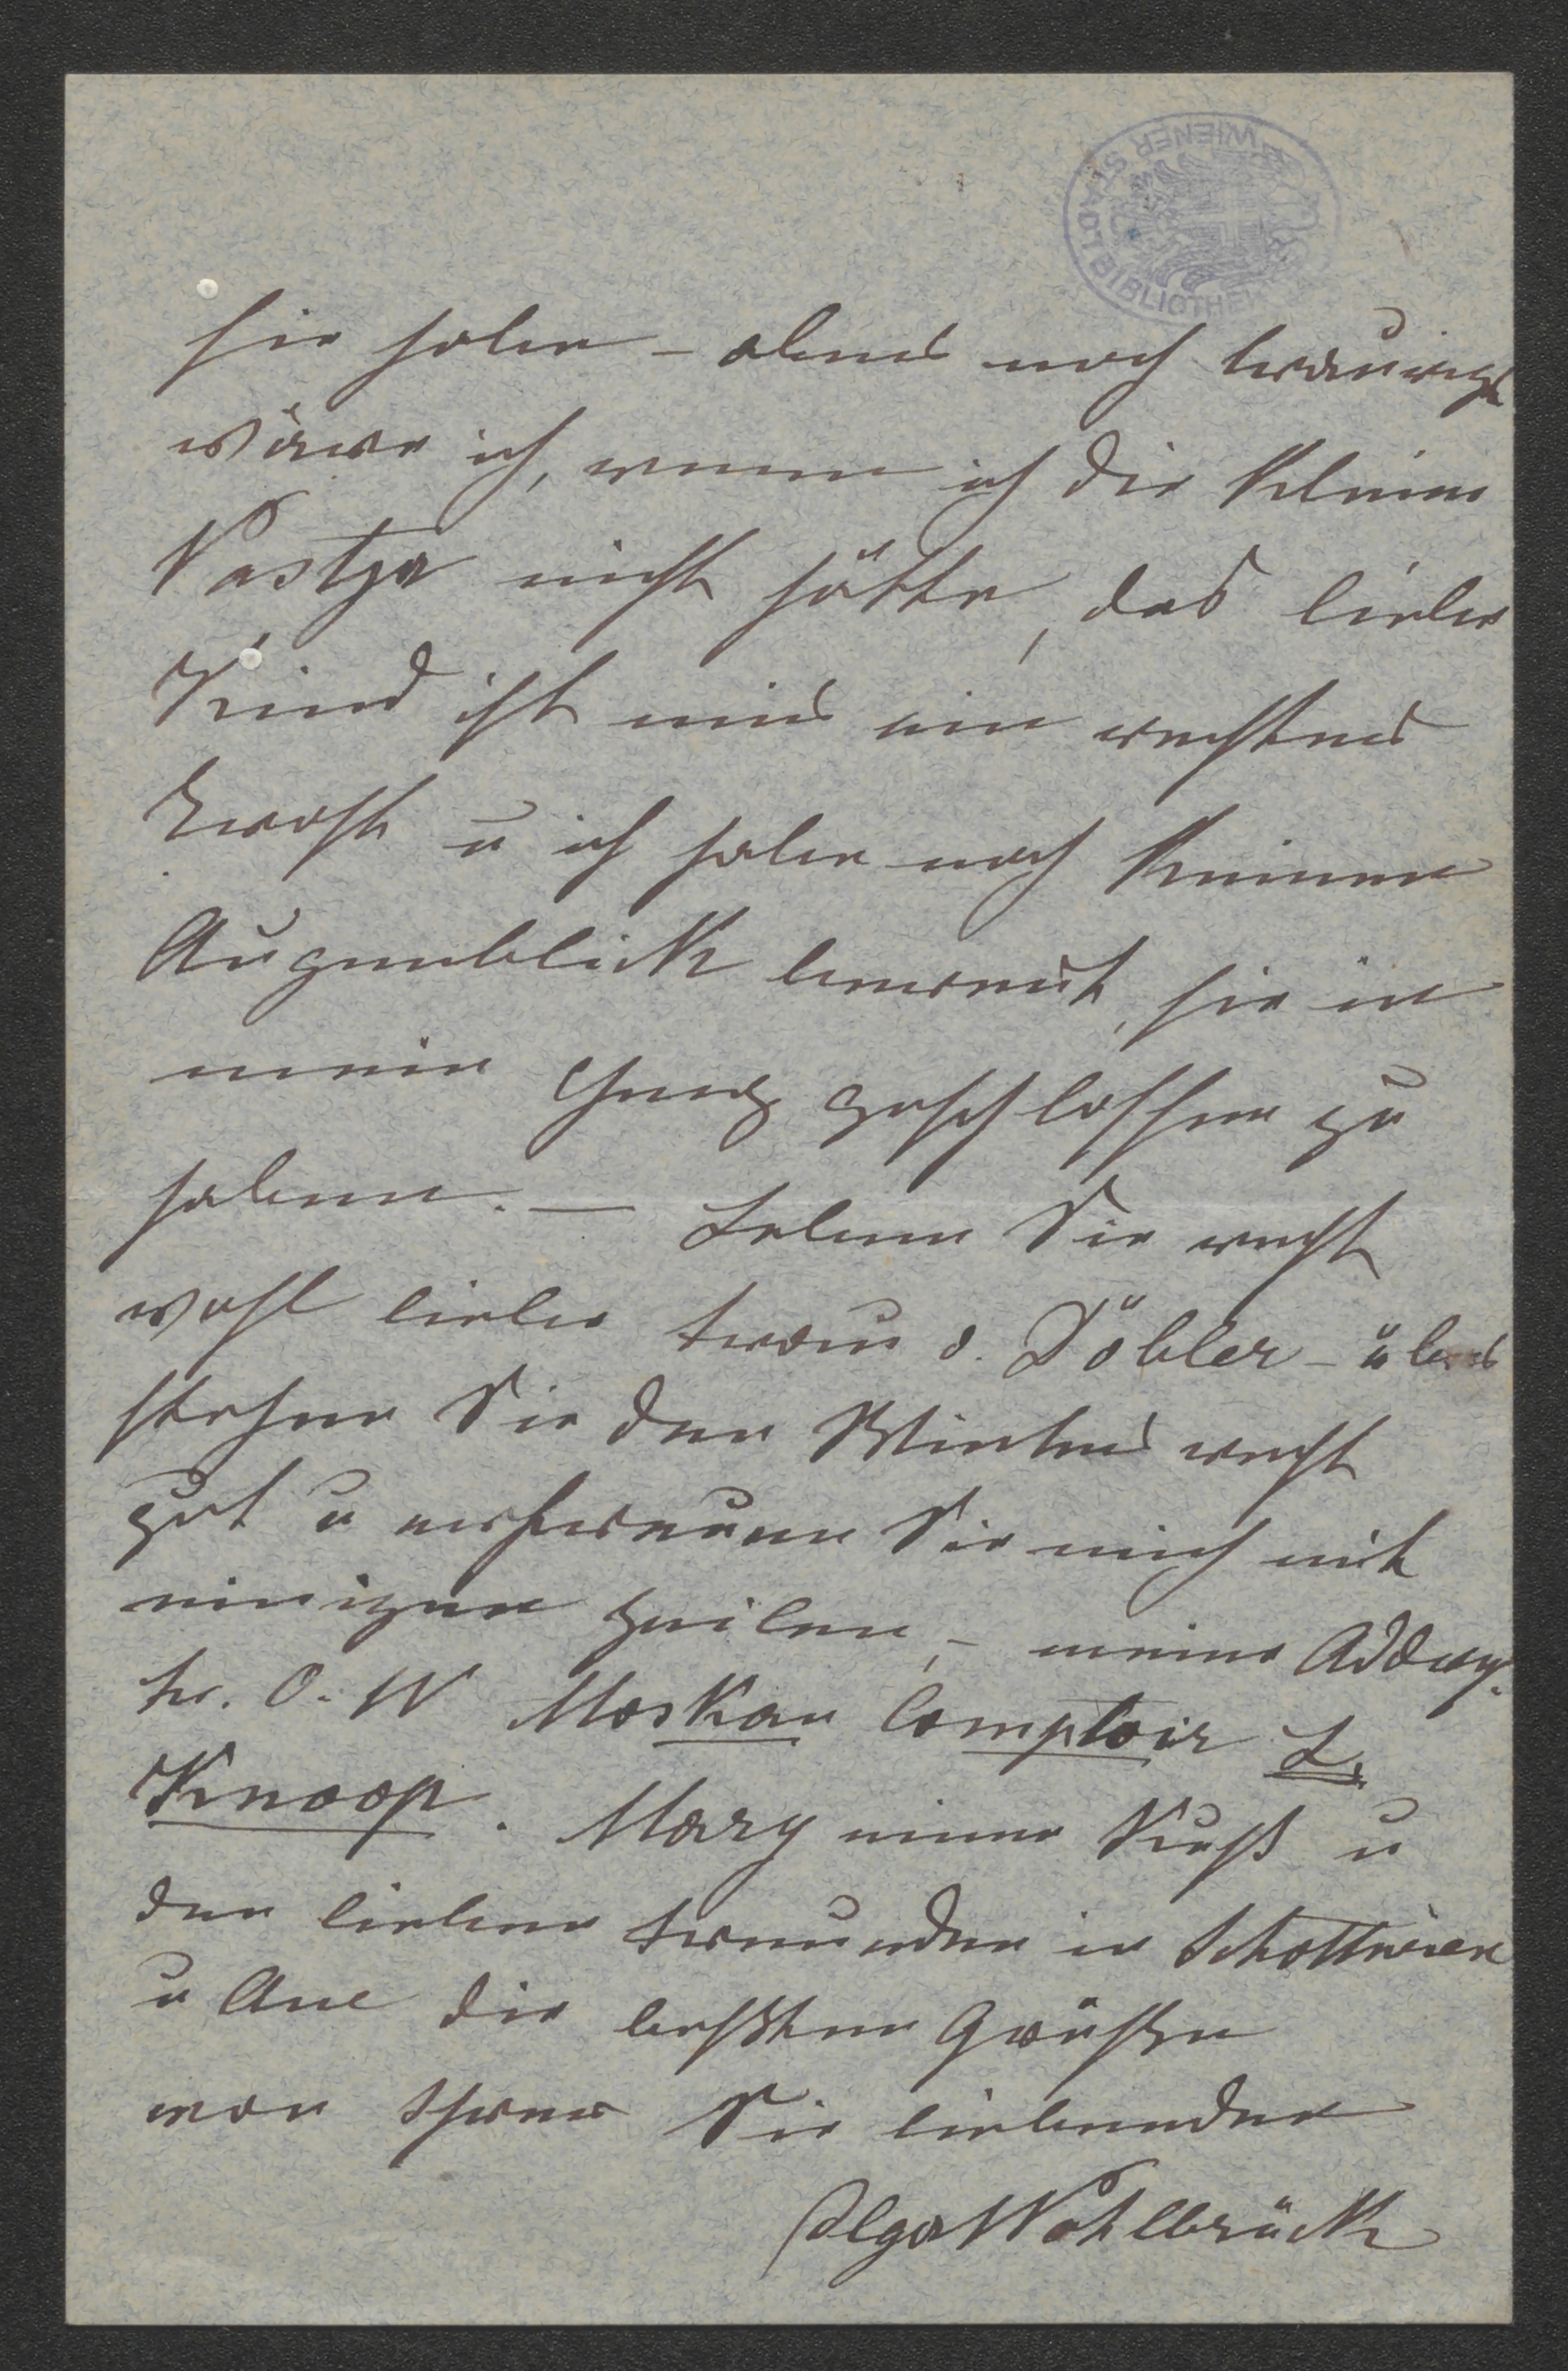 WIENER STADTBIBLIOTHEK
sie habe – aber noch trauriger
wäre ich, wenn ich die kleine
Nastja nicht hätte, das liebe
Kind ist mir ein rechter
Trost u ich habe noch keinen
Augenblick bereut, sie in
mein Herz geschlossen zu
haben. – Leben Sie recht
wohl liebe Frau v. Döbler – über
stehen Sie den Winter recht
gut u erfreuen Sie mich mit
einigen Zeilen, – meine Addreß.
Fr. O. W Moskau Comptoir L.
Knoop. Mary einen Kuß u
den lieben Freunden in Schottwien
u Aue die beßten Grüße
von Ihrer Sie liebenden
Olga Wohlbrück